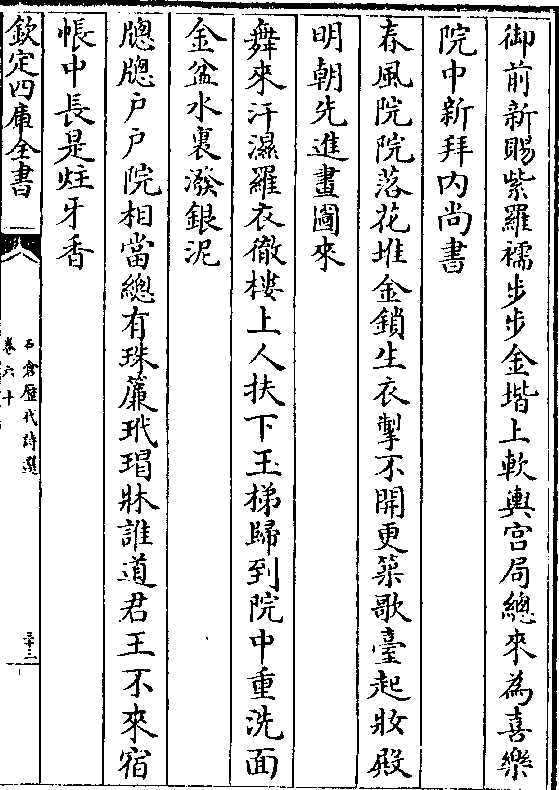 御前新賜紫羅襦步步金堦上軟輿宮局總來為喜樂
院中新拜内尚書
春風院院落花堆金鎖生衣掣不開更築歌臺起妝殿
明朝先進畫圖來
舞來汗濕羅衣徹樓上人扶下玉梯歸到院中重洗面
金盆水裏潑銀泥
牕牕戶戶院相當總有珠簾玳瑁牀誰道君王不來宿
帳中長是炷牙香
欽定四庫全書
石倉歷代詩選
卷六十
三十三